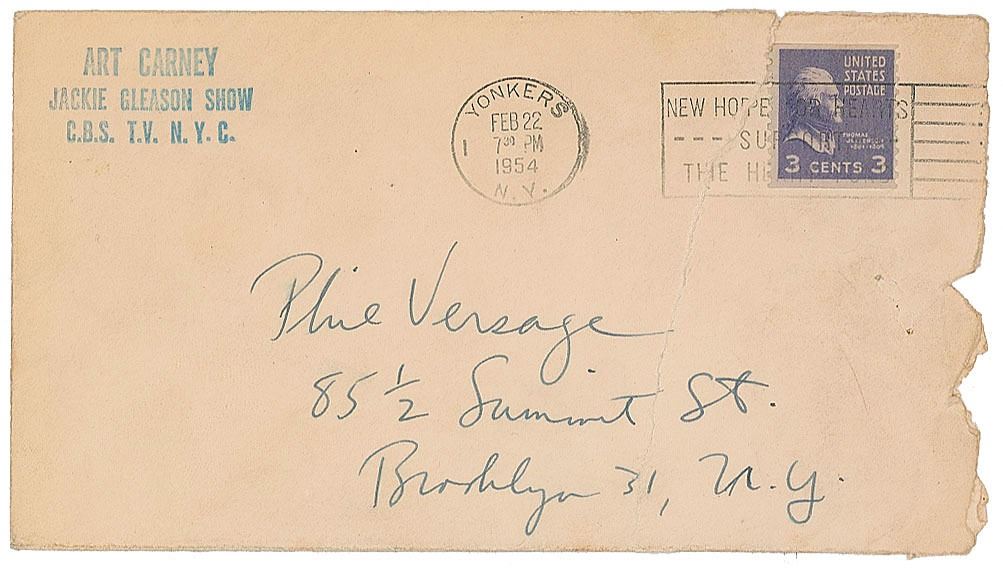 ART CARNEY
JACKIE GLEASON SHOW
C.B.S. T.V. N.Y.C.
YONKERS
FEB 22
7 30 PM
1954
N.Y.
1
NEW HOPE FOR HEARTS
--- SUPPORT
THE HEART FUND
UNITED
STATES
POSTAGE
THOMAS
JEFFERSON
3 CENTS 3
Phil Versage
85 1/2 Summit St.
Brooklyn 31, N.Y.